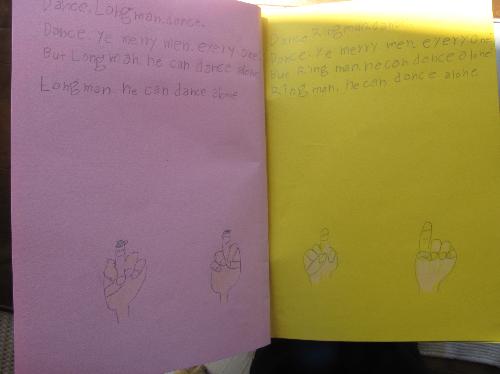 Dance, Longman, dance.
Dance. Ye merry men. every one.
But Longman. he can dance alone
Longman. he can dance alone
Dance, Ringman, dance.
Dance. Ye merry men. every one.
But Ring man. he can dance alone
Ring man. he can dance alone